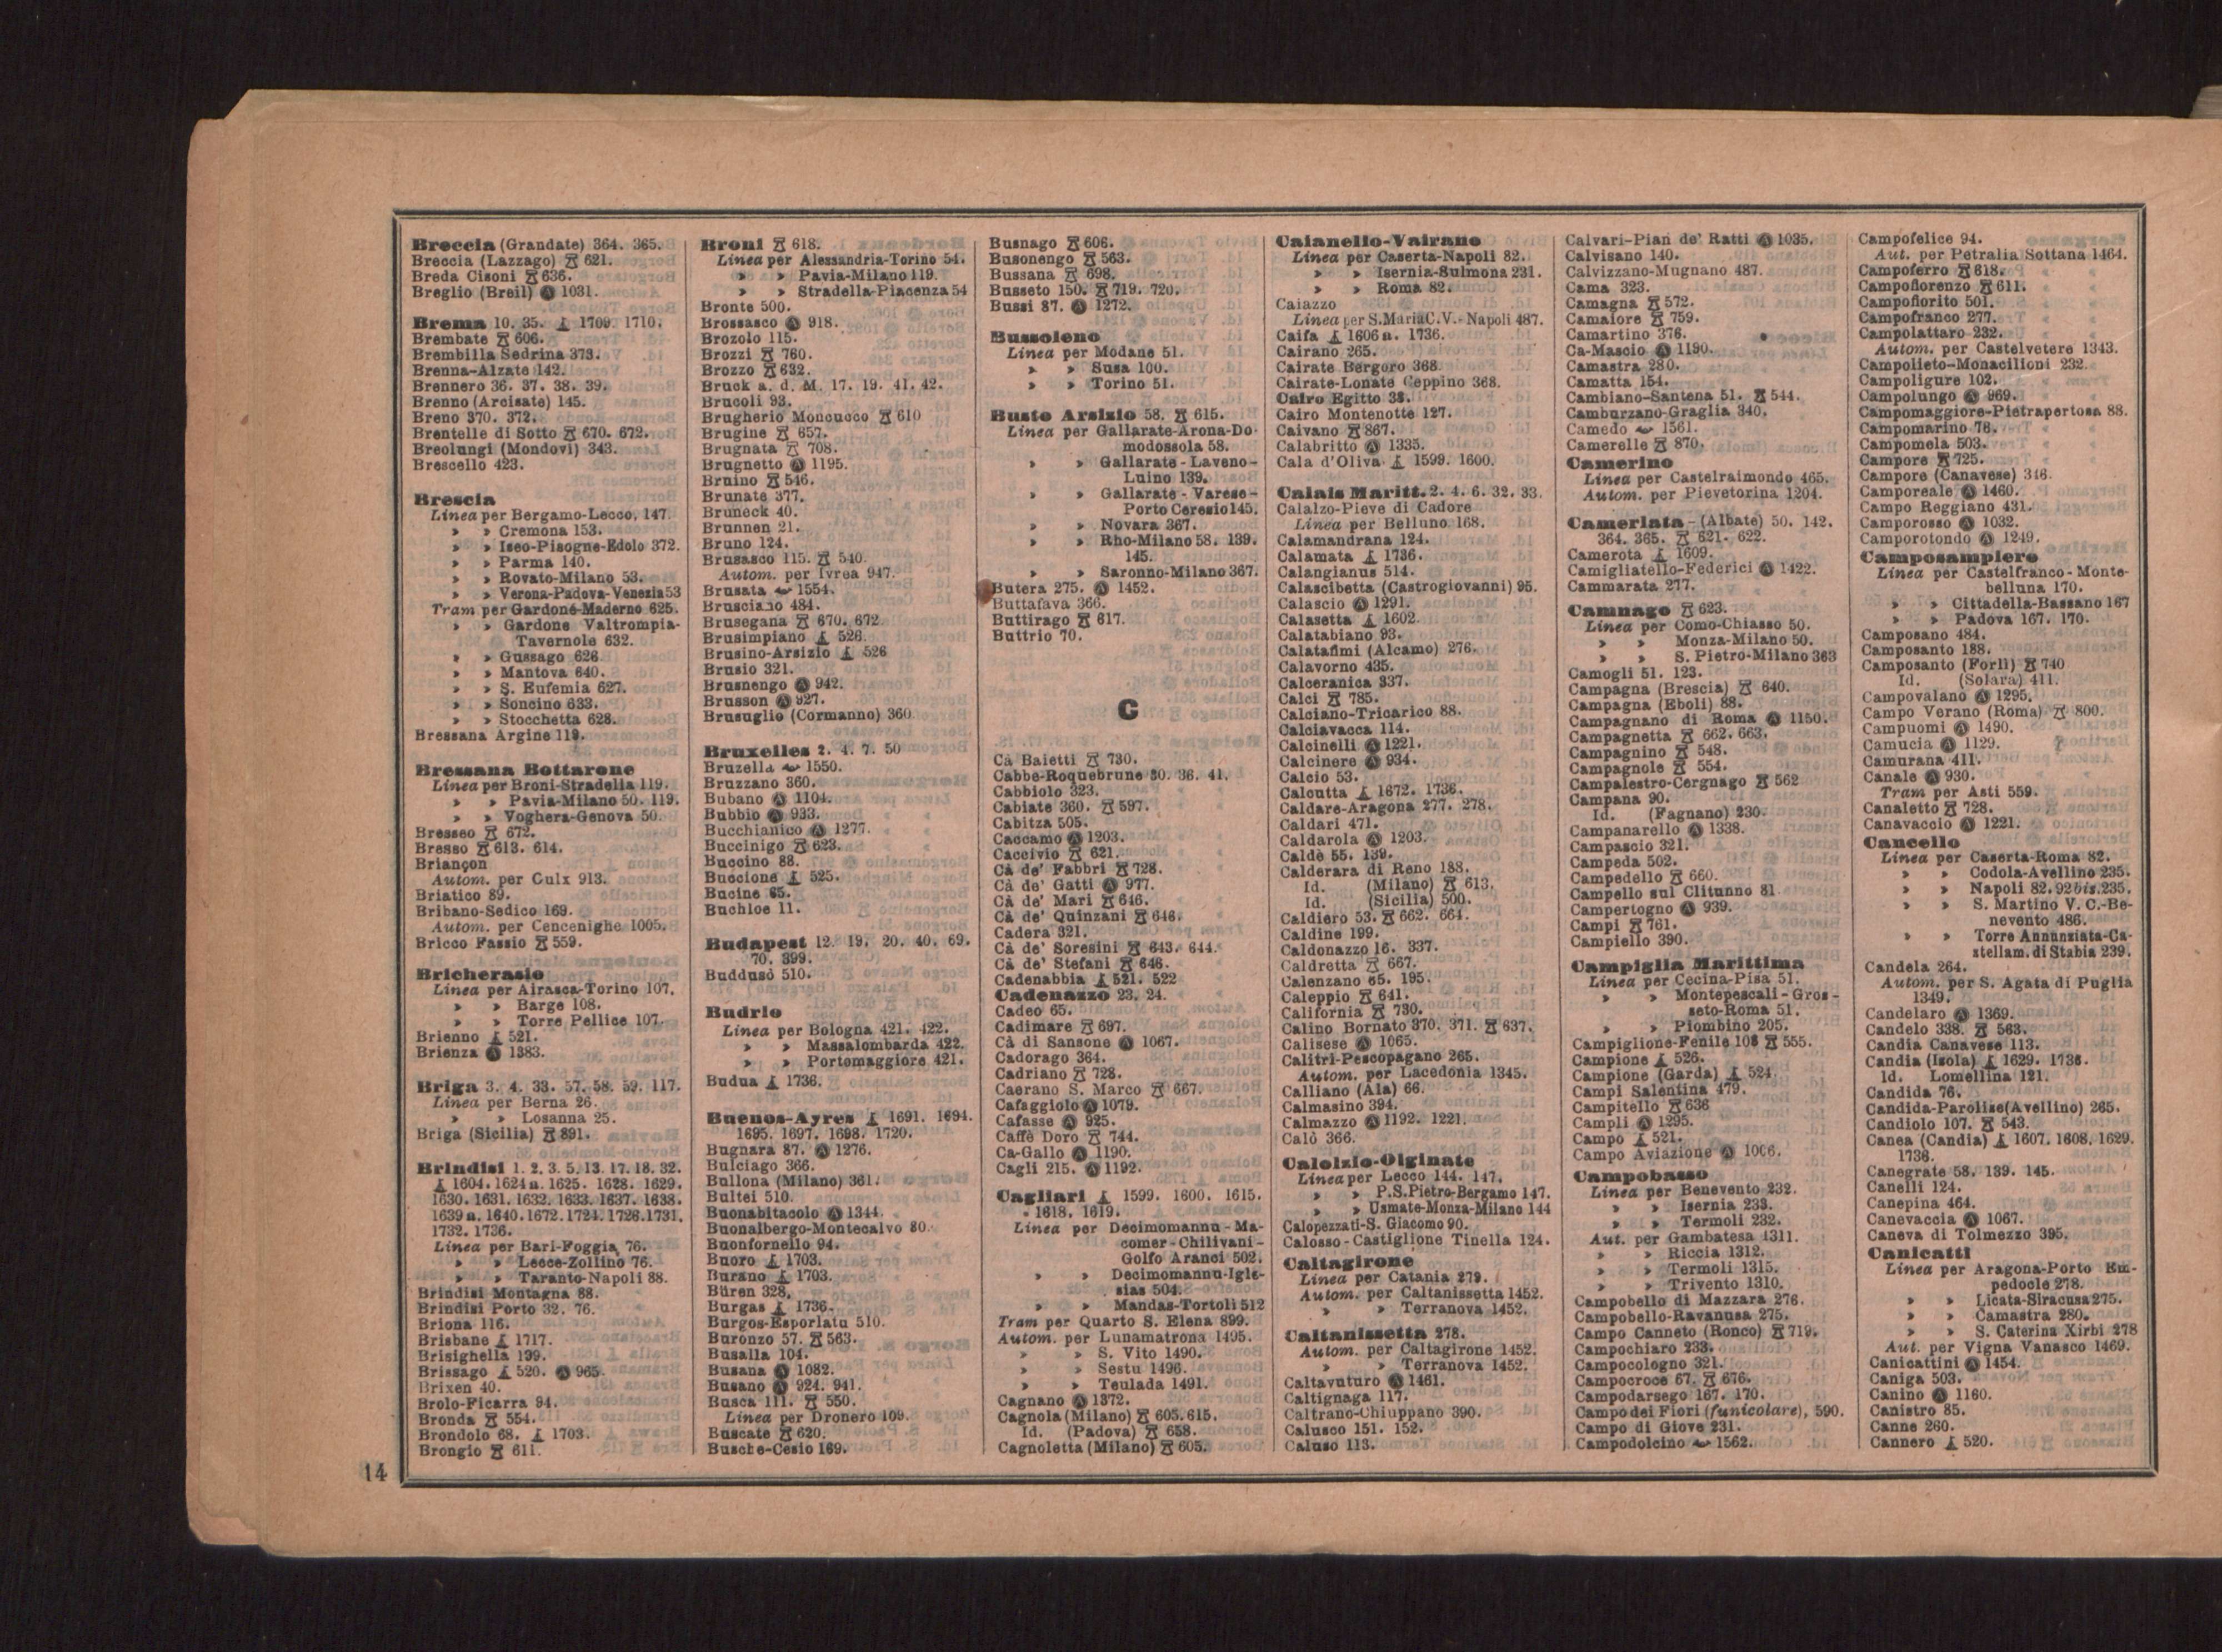 Breccia (Grandate) 364. 365.
Breccia (Lazzago) 621.
Breda Cisoni 636.
Breglio (Breil) 1031.
Brema 10. 35. 1709. 1710.
Brembate 606.
Brembilla Sedrina 373.
Brenna-Alzate 142.
Brennero 36. 37. 38. 39.
Brenno (Arcisate) 145.
Breno 370. 372.
Brentelle di Sotto 670. 672.
Breolungi (Mondovì) 343.
Brescello 423.
Brescia
Linea per Bergamo-Lecco, 147.
» » Cremona 153.
» » Iseo-Pisogne-Edolo 372.
» » Parma 140.
» » Rovato-Milano 53.
» » Verona-Padova-Venezia 53
Tram per Gardone-Maderno 625.
» » Gardone Valtrompia-
Tavernole 632.
» » Gussago 626.
» » Mantova 640.
» » S. Eufemia 627.
» » Soncino 633.
» » Stocchetta 628.
Bressana Argine 119.
Bressana Bottarone
Linea per Broni-Stradella 119.
» » Pavia-Milano 50. 119.
» » Voghera-Genova 50.
Bresseo 672.
Bresso 613. 614.
Briançon
Autom. per Oulx 913.
Briatico 89.
Bribano-Sedico 169.
Autom. per Cencenighe 1005.
Bricco Fassio 559.
Bricherasio
Linea per Airasca-Torino 107.
» » Barge 108.
» » Torre Pellice 107.
Brienno 521.
Brienza 1383.
Briga 3. 4. 33. 57. 58. 59. 117.
Linea per Berna 26.
» » Losanna 25.
Briga (Sicilia) 891.
Brindisi 1. 2. 3. 5. 13. 17. 18. 32.
1604. 1624 a. 1625. 1628. 1629.
1630. 1631. 1632. 1633. 1637. 1638.
1639 a. 1640. 1672. 1724. 1726. 1731.
1732. 1736.
Linea per Bari-Foggia 76.
» » Lecce-Zollino 76.
» » Taranto-Napoli 88.
Brindisi Montagna 88.
Brindisi Porto 32. 76.
Briona 116.
Brisbane 1717.
Brisighella 199.
Brissago 520. 965.
Brixen 40.
Brolo-Ficarra 94.
Bronda 554.
Brondolo 68. 1703.
Brongio 611.
Broni 618.
Linea per Alessandria-Torino 54.
» » Pavia-Milano 119.
» » Stradella-Piacenza 54
Bronte 500.
Brossasco 918.
Brozolo 115.
Brozzi 760.
Brozzo 632.
Bruck a. d. M. 17. 19. 41. 42.
Brucoli 93.
Brugherio Moncucco 610
Brugine 657.
Brugnata 708.
Brugnetto 1195.
Bruino 546.
Brunate 377.
Bruneck 40.
Brunnen 21.
Bruno 124.
Brusasco 115. 540.
Autom. per Ivrea 947.
Brusata 1554.
Brusciano 484.
Brusegana 670. 672
Brusimpiano 526.
Brusino-Arsizio 526
Brusio 321.
Brusnengo 942.
Brusson 927.
Brusuglio (Cormanno) 360
Bruxelles 2. 4. 7. 50
Bruzella 1550.
Bruzzano 360.
Bubano 1104.
Bubbio 933.
Bucchianico 1277.
Buccinigo 623.
Buccino 88.
Buccione 525.
Bucine 65.
Buchloe 11.
Budapest 12. 19. 20. 40. 69.
70. 399.
Buddusò 510.
Budrio
Linea per Bologna 421. 422.
» » Massalombarda 422.
» » Portomaggiore 421.
Budua 1736.
Buenos-Ayres 1691. 1694.
1695. 1697. 1698. 1720.
Bugnara 87. 1276.
Bulciago 366.
Bullona (Milano) 361.
Bultei 510.
Buonabitacolo 1344.
Buonalbergo-Montecalvo 80.
Buonfornello 94.
Buoro 1703.
Burano 1703.
Büren 328.
Burgas 1736.
Burgos-Esporlatu 510.
Buronzo 57. 563.
Busalla 104.
Busana 1082.
Busano 924. 941.
Busca 111. 550.
Linea per Dronero 109.
Buscate 620.
Busche-Cesio 169.
Busnago 606.
Busonengo 563.
Bussana 698.
Busseto 150. 719. 720.
Bussi 87. 1272.
Bussoleno
Linea per Modane 51.
» » Susa 100.
» » Torino 51.
Busto Arsizio 58. 615.
Linea per Gallarate-Arona-Do-
modossola 58.
» » Gallarate - Laveno-
Luino 139.
» » Gallarate - Varese-
Porto Ceresio 145.
» » Novara 367.
» » Rho-Milano 58. 139.
145.
» » Saronno-Milano 367.
Butera 275. 1452.
Buttafava 366.
Buttirago 617.
Buttrio 70.
C
Cà Baietti 730.
Cabbe-Roquebrune 30. 36. 41.
Cabbiolo 323.
Cabiate 360. 597.
Cabitza 505.
Caccamo 1203.
Caccivio 621.
Cà de' Fabbri 728.
Cà de' Gatti 977.
Cà de' Mari 646.
Cà de' Quinzani 646.
Cadera 321.
Cà de' Soresini 643. 644.
Cà de' Stefani 646.
Cadenabbia 521. 522
Cadenazzo 23. 24.
Cadeo 65.
Cadimare 697.
Cà di Sansone 1067.
Cadorago 364.
Cadriano 728.
Caerano S. Marco 667.
Cafaggiolo 1079.
Cafasse 925.
Caffè Doro 744.
Ca-Gallo 1190.
Cagli 215. 1192.
Cagliari 1599. 1600. 1615.
1618. 1619.
Linea per Decimomannu-Ma-
comer-Chilivani-
Golfo Aranci 502.
» » Decimomannu-Igle-
sias 504.
» » Mandas-Tortolì 512
Tram per Quarto S. Elena 899.
Autom. per Lunamatrona 1495.
» » S. Vito 1490.
» » Sestu 1496.
» » Teulada 1491.
Cagnano 1372.
Cagnola (Milano) 605. 615.
Id. (Padova) 658.
Cagnoletta (Milano) 605.
Caianello-Vairano
Linea per Caserta-Napoli 82.
» » Isernia-Sulmona 231.
» » Roma 82.
Caiazzo
Linea per S. Maria C. V.-Napoli 487.
Caifa 1606 a. 1736.
Cairano 265.
Cairate Bergoro 368.
Cairate-Lonate Ceppino 368.
Cairo Egitto 33.
Cairo Montenotte 127.
Caivano 867.
Calabritto 1335.
Cala d'Oliva 1599. 1600.
Calais Maritt. 2. 4. 6. 32. 33.
Calalzo-Pieve di Cadore
Linea per Belluno 168.
Calamandrana 124.
Calamata 1736.
Calangianus 514.
Calascibetta (Castrogiovanni) 95.
Calascio 1291.
Calasetta 1602.
Calatabiano 93.
Calatafimi (Alcamo) 276.
Calavorno 435.
Calceranica 337.
Calci 785.
Calciano-Tricarico 88.
Calciavacca 114.
Calcinelli 1221.
Calcinere 934.
Calcio 53.
Calcutta 1672. 1736.
Caldare-Aragona 277. 278.
Caldari 471.
Caldarola 1203.
Caldè 55. 139.
Calderara di Reno 188.
Id. (Milano) 613.
Id. (Sicilia) 500.
Caldiero 53. 662. 664.
Caldine 199.
Caldonazzo 16. 337.
Caldretta 667.
Calenzano 65. 195.
Caleppio 641.
California 730.
Calino Bornato 370. 371. 637.
Calisese 1065.
Calitri-Pescopagano 265.
Autom. per Lacedonia 1345.
Calliano (Ala) 66.
Calmasino 394.
Calmazzo 1192. 1221.
Calò 366.
Calolzio-Olginate
Linea per Lecco 144. 147.
» » P.S.Pietro-Bergamo 147.
» » Usmate-Monza-Milano 144
Calopezzati-S. Giacomo 90.
Calosso-Castiglione Tinella 124.
Caltagirone
Linea per Catania 279.
Autom. per Caltanissetta 1452.
» » Terranova 1452.
Caltanissetta 278.
Autom. per Caltagirone 1452.
» » Terranova 1452.
Caltavuturo 1461.
Caltignaga 117.
Caltrano-Chiuppano 390.
Calusco 151. 152.
Caluso 113.
Calvari-Pian de' Ratti 1035.
Calvisano 140.
Calvizzano-Mugnano 487.
Cama 323.
Camagna 572.
Camaiore 759.
Camartino 376.
Ca-Mascio 1190.
Camastra 280.
Camatta 154.
Cambiano-Santena 51. 544.
Camburzano-Graglia 340.
Camedo 1561.
Camerelle 870.
Camerino
Linea per Castelraimondo 465.
Autom. per Pievetorina 1204.
Camerlata - (Albate) 50. 142.
364. 365. 621. 622.
Camerota 1609.
Camigliatello-Federici 1422.
Cammarata 277.
Camnago 623.
Linea per Como-Chiasso 50.
» » Monza-Milano 50.
» » S. Pietro-Milano 363
Camogli 51. 123.
Campagna (Brescia) 640.
Campagna (Eboli) 88.
Campagnano di Roma 1150.
Campagnetta 662. 663.
Campagnino 548.
Campagnole 554.
Campalestro-Cergnago 562
Campana 90.
Id. (Fagnano) 230.
Campanarello 1338.
Campascio 321.
Campeda 502.
Campedello 660.
Campello sul Clitunno 81
Campertogno 939.
Campi 761.
Campiello 390.
Campiglia Marittima
Linea per Cecina-Pisa 51.
» » Montepescali-Gros-
seto-Roma 51.
» » Piombino 205.
Campiglione-Fenile 108 555.
Campione 526.
Campione (Garda) 524
Campi Salentina 479.
Campitello 636
Campli 1295.
Campo 521.
Campo Aviazione 1006.
Campobasso
Linea per Benevento 232.
» » Isernia 233.
» » Termoli 232.
Aut. per Gambatesa 1311.
» » Riccia 1312.
» » Termoli 1315.
» » Trivento 1310.
Campobello di Mazzara 276.
Campobello-Ravanusa 275.
Campo Canneto (Ronco) 719.
Campochiaro 233.
Campocologno 321.
Campocroce 67. 676.
Campodarsego 167. 170.
Campo dei Fiori (funicolare), 590.
Campo di Giove 231.
Campodolcino 1562.
Campofelice 94.
Aut. per Petralia Sottana 1464.
Campoferro 618.
Campofiorenzo 611.
Campofiorito 501.
Campofranco 277.
Campolattaro 232.
Autom. per Castelvetere 1343.
Campolieto-Monacilioni 232.
Campoligure 102.
Campolungo 969.
Campomaggiore-Pietrapertosa 88.
Campomarino 76.
Campomela 503.
Campore 725.
Campore (Canavese) 346.
Camporeale 1460.
Campo Reggiano 431.
Camporosso 1032.
Camporotondo 1249.
Camposampiero
Linea per Castelfranco-Monte-
belluna 170.
» » Cittadella-Bassano 167
» » Padova 167. 170.
Camposano 484.
Camposanto 188.
Camposanto (Forlì) 740
Id. (Solara) 411.
Campovalano 1295.
Campo Verano (Roma) 800.
Campuomi 1490.
Camucia 1129.
Camurana 411.
Canale 930.
Tram per Asti 559.
Canaletto 728.
Canavaccio 1221.
Cancello
Linea per Caserta-Roma 82.
» » Codola-Avellino 235.
» » Napoli 82. 92 bis. 235.
» » S. Martino V. C.-Be-
nevento 486.
» » Torre Annunziata-Ca-
stellam. di Stabia 239.
Candela 264.
Autom. per S. Agata di Puglia
1349.
Candelaro 1369.
Candelo 338. 563.
Candia Canavese 113.
Candia (Isola) 1629. 1736.
Id. Lomellina 121.
Candida 76.
Candida-Parolise (Avellino) 265.
Candiolo 107. 543.
Canea (Candia) 1607. 1608. 1629.
1736.
Canegrate 58. 139. 145.
Canelli 124.
Canepina 464.
Canevaccia 1067.
Caneva di Tolmezzo 395.
Canicattì
Linea per Aragona-Porto Em-
pedocle 278.
» » Licata-Siracusa 275.
» » Camastra 280.
» » S. Caterina Xirbi 278
Aut. per Vigna Vanasco 1469.
Canicattini 1454.
Caniga 503.
Canino 1160.
Canistro 85.
Canne 260.
Cannero 520.
14